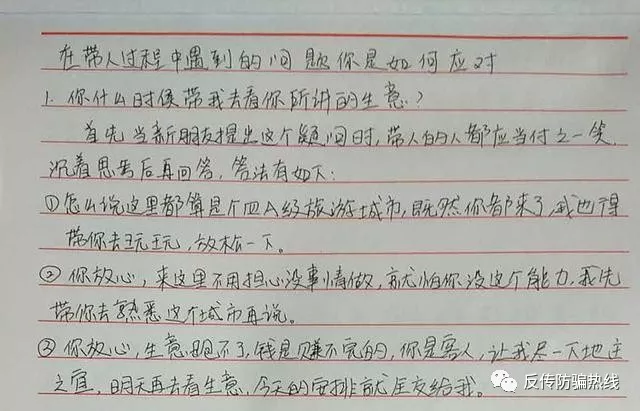 在带人过程中遇到的问题你是如何应对
1. 你什么时候带我去看你所讲的生意?
首先当新朋友提出这个疑问时,带人的人都应当付之一笑
沉着思考后再回答,答法有如下:
①怎么说这里都算是个四A级旅游城市,既然你都来了,我也得
带你去玩玩,放松一下。
②你放心,来这里不用担心没事情做,就怕你没这个能力,我先
带你去熟悉这个城市再说。
③你放心,生意跑不了,钱是赚不完的,你是客人,让我尽一下地主
之宜,明天再去看生意,今天的安排就全交给我。
反传防骗热线